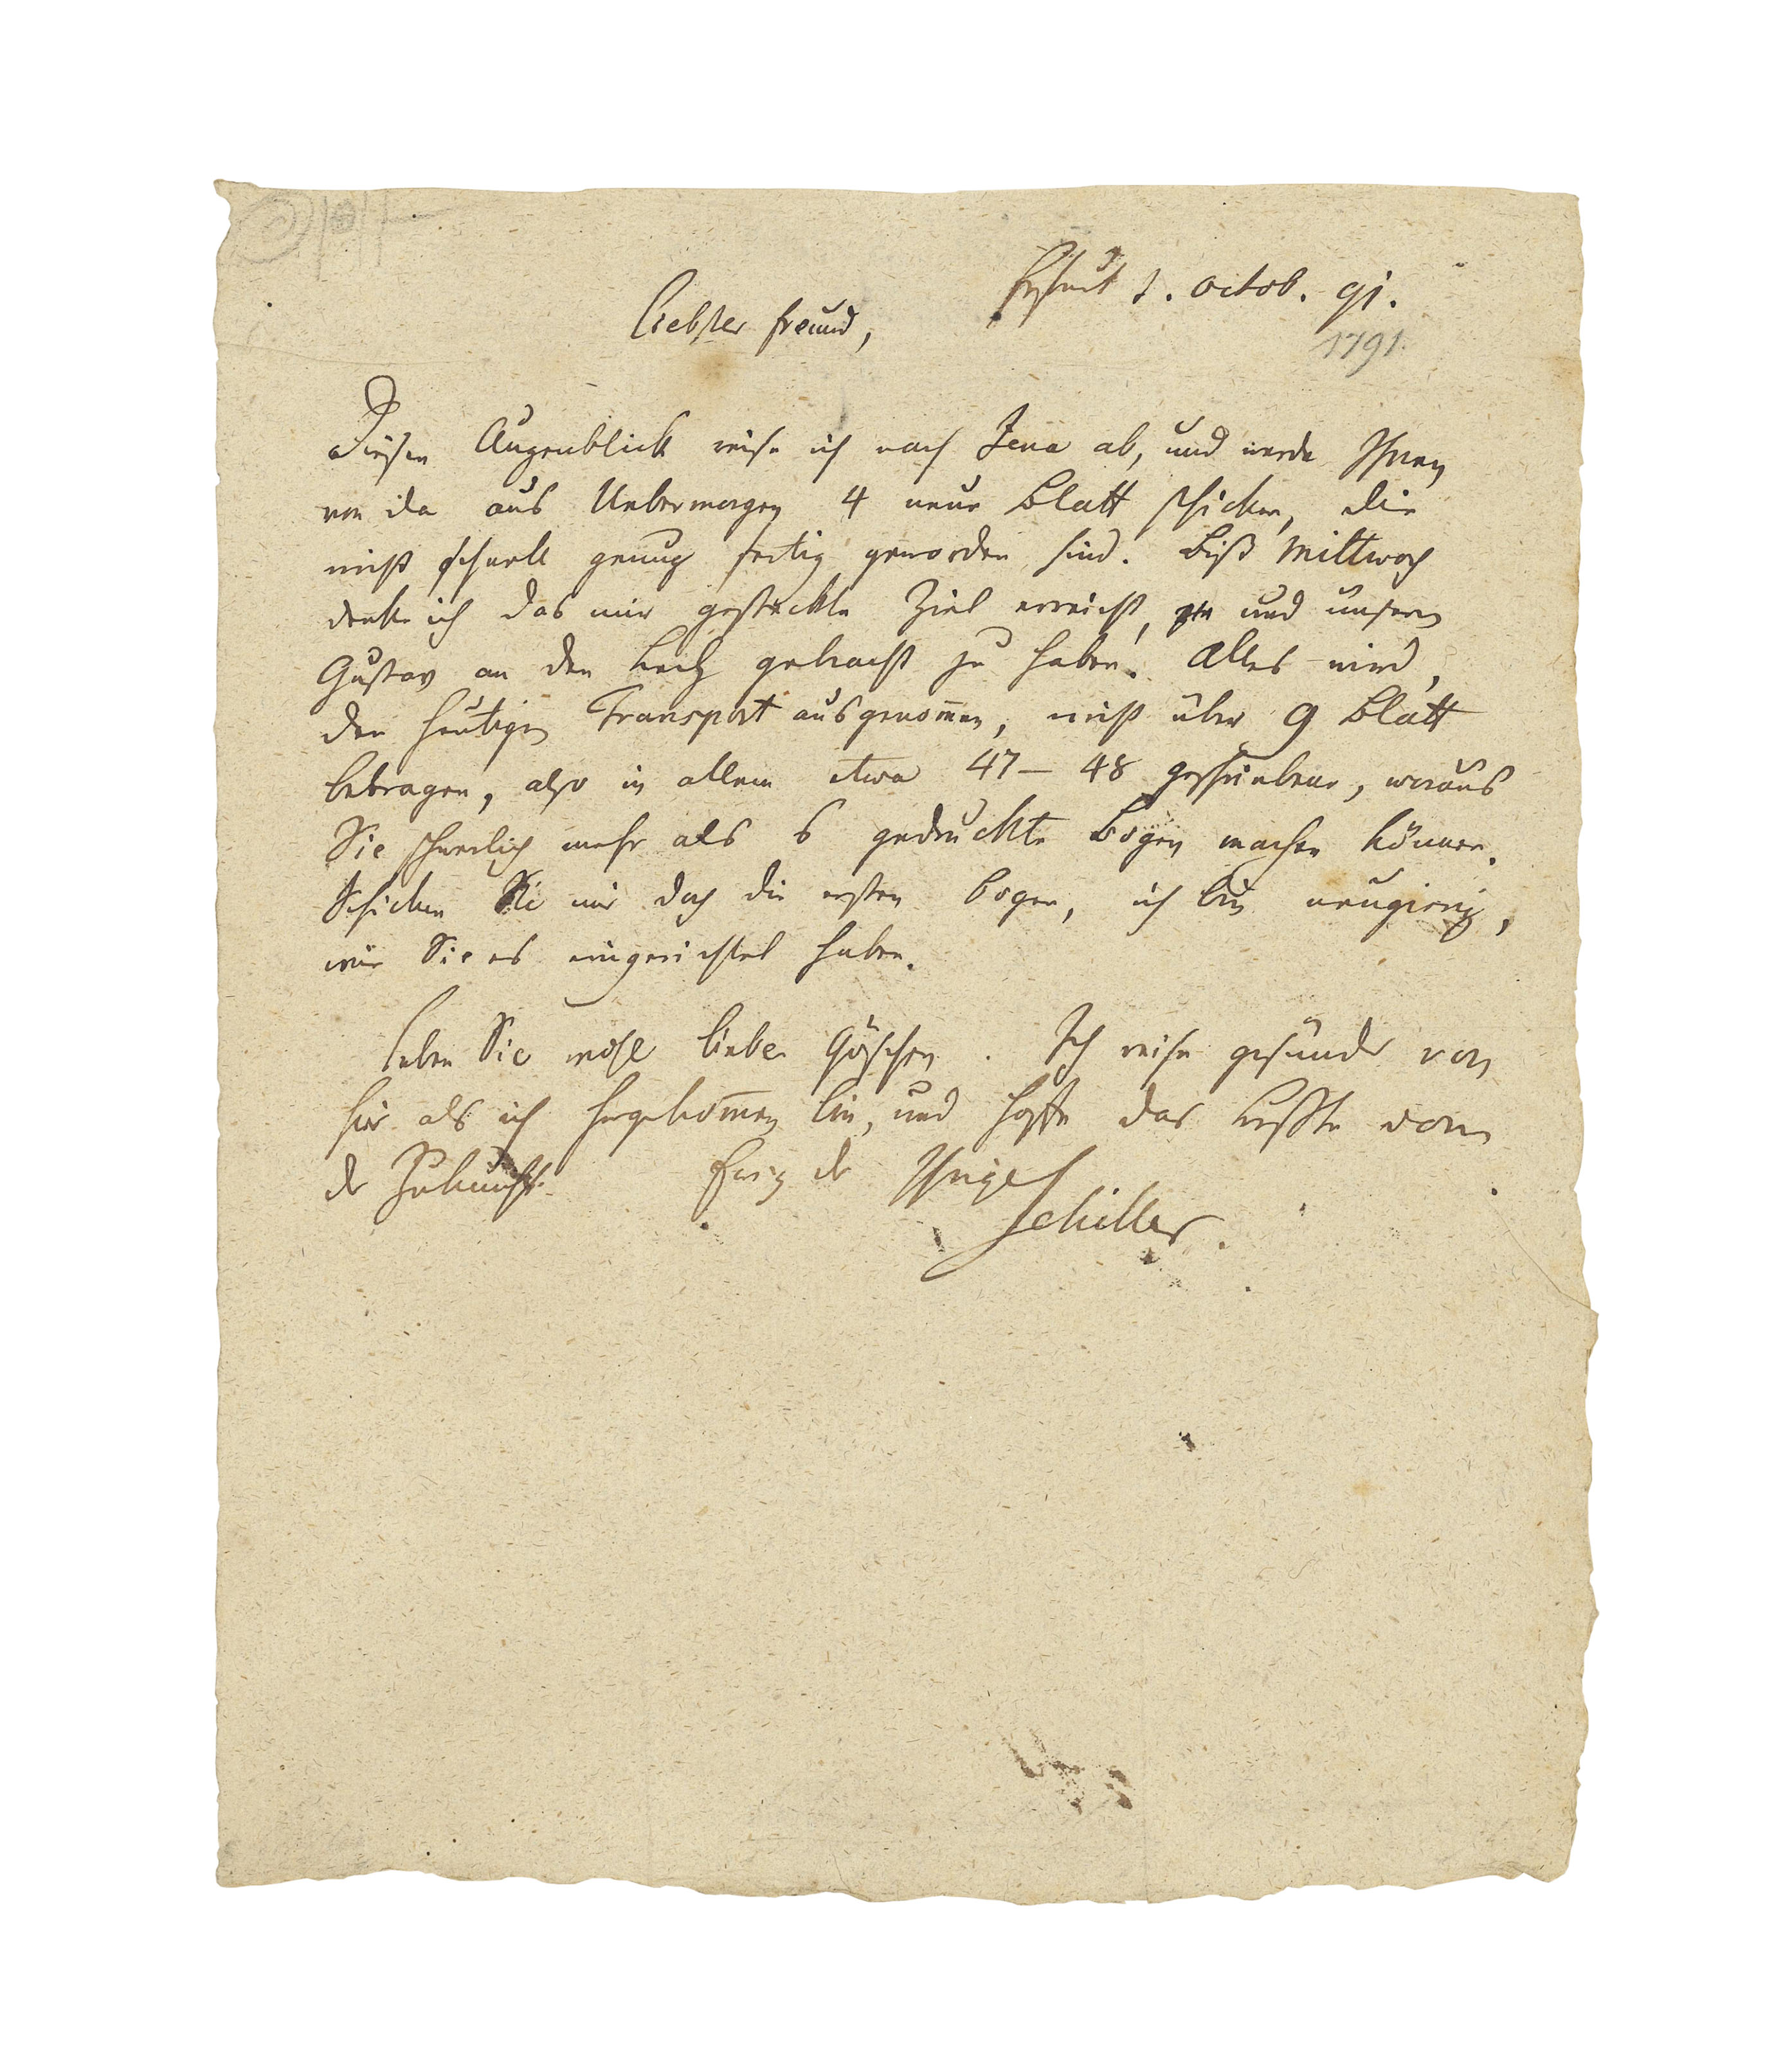 Erfurt 1. octob. 91.
1791.
Liebster Freund,
Diesen Augenblick reise ich nach Jena ab, und werde Ihnen
von da aus Uebermorgen 4 neue Blatt schicken, die
nicht schnell genug fertig geworden sind. Biß Mittwoch
denke ich das mir gesteckte Ziel erreicht, und unsern
Gustav an den Lech gebracht zu haben. Alles wird,
den heutigen Transport ausgenom̄en, nicht über 9 Blatt
betragen, also in allem etwa 47 – 48 geschriebene, woraus
Sie schwerlich mehr als 6 gedruckte Bogen machen können.
Schicken Sie mir doch die ersten Bogen, ich bin neugierig,
wie Sie es eingerichtet haben.
Leben Sie wohl lieber Göschen. Ich reise gesünder von
hier als ich hergekom̄en bin, und hoffe das beßte von
der Zukunft. Ewig der Ihrige
Schiller.